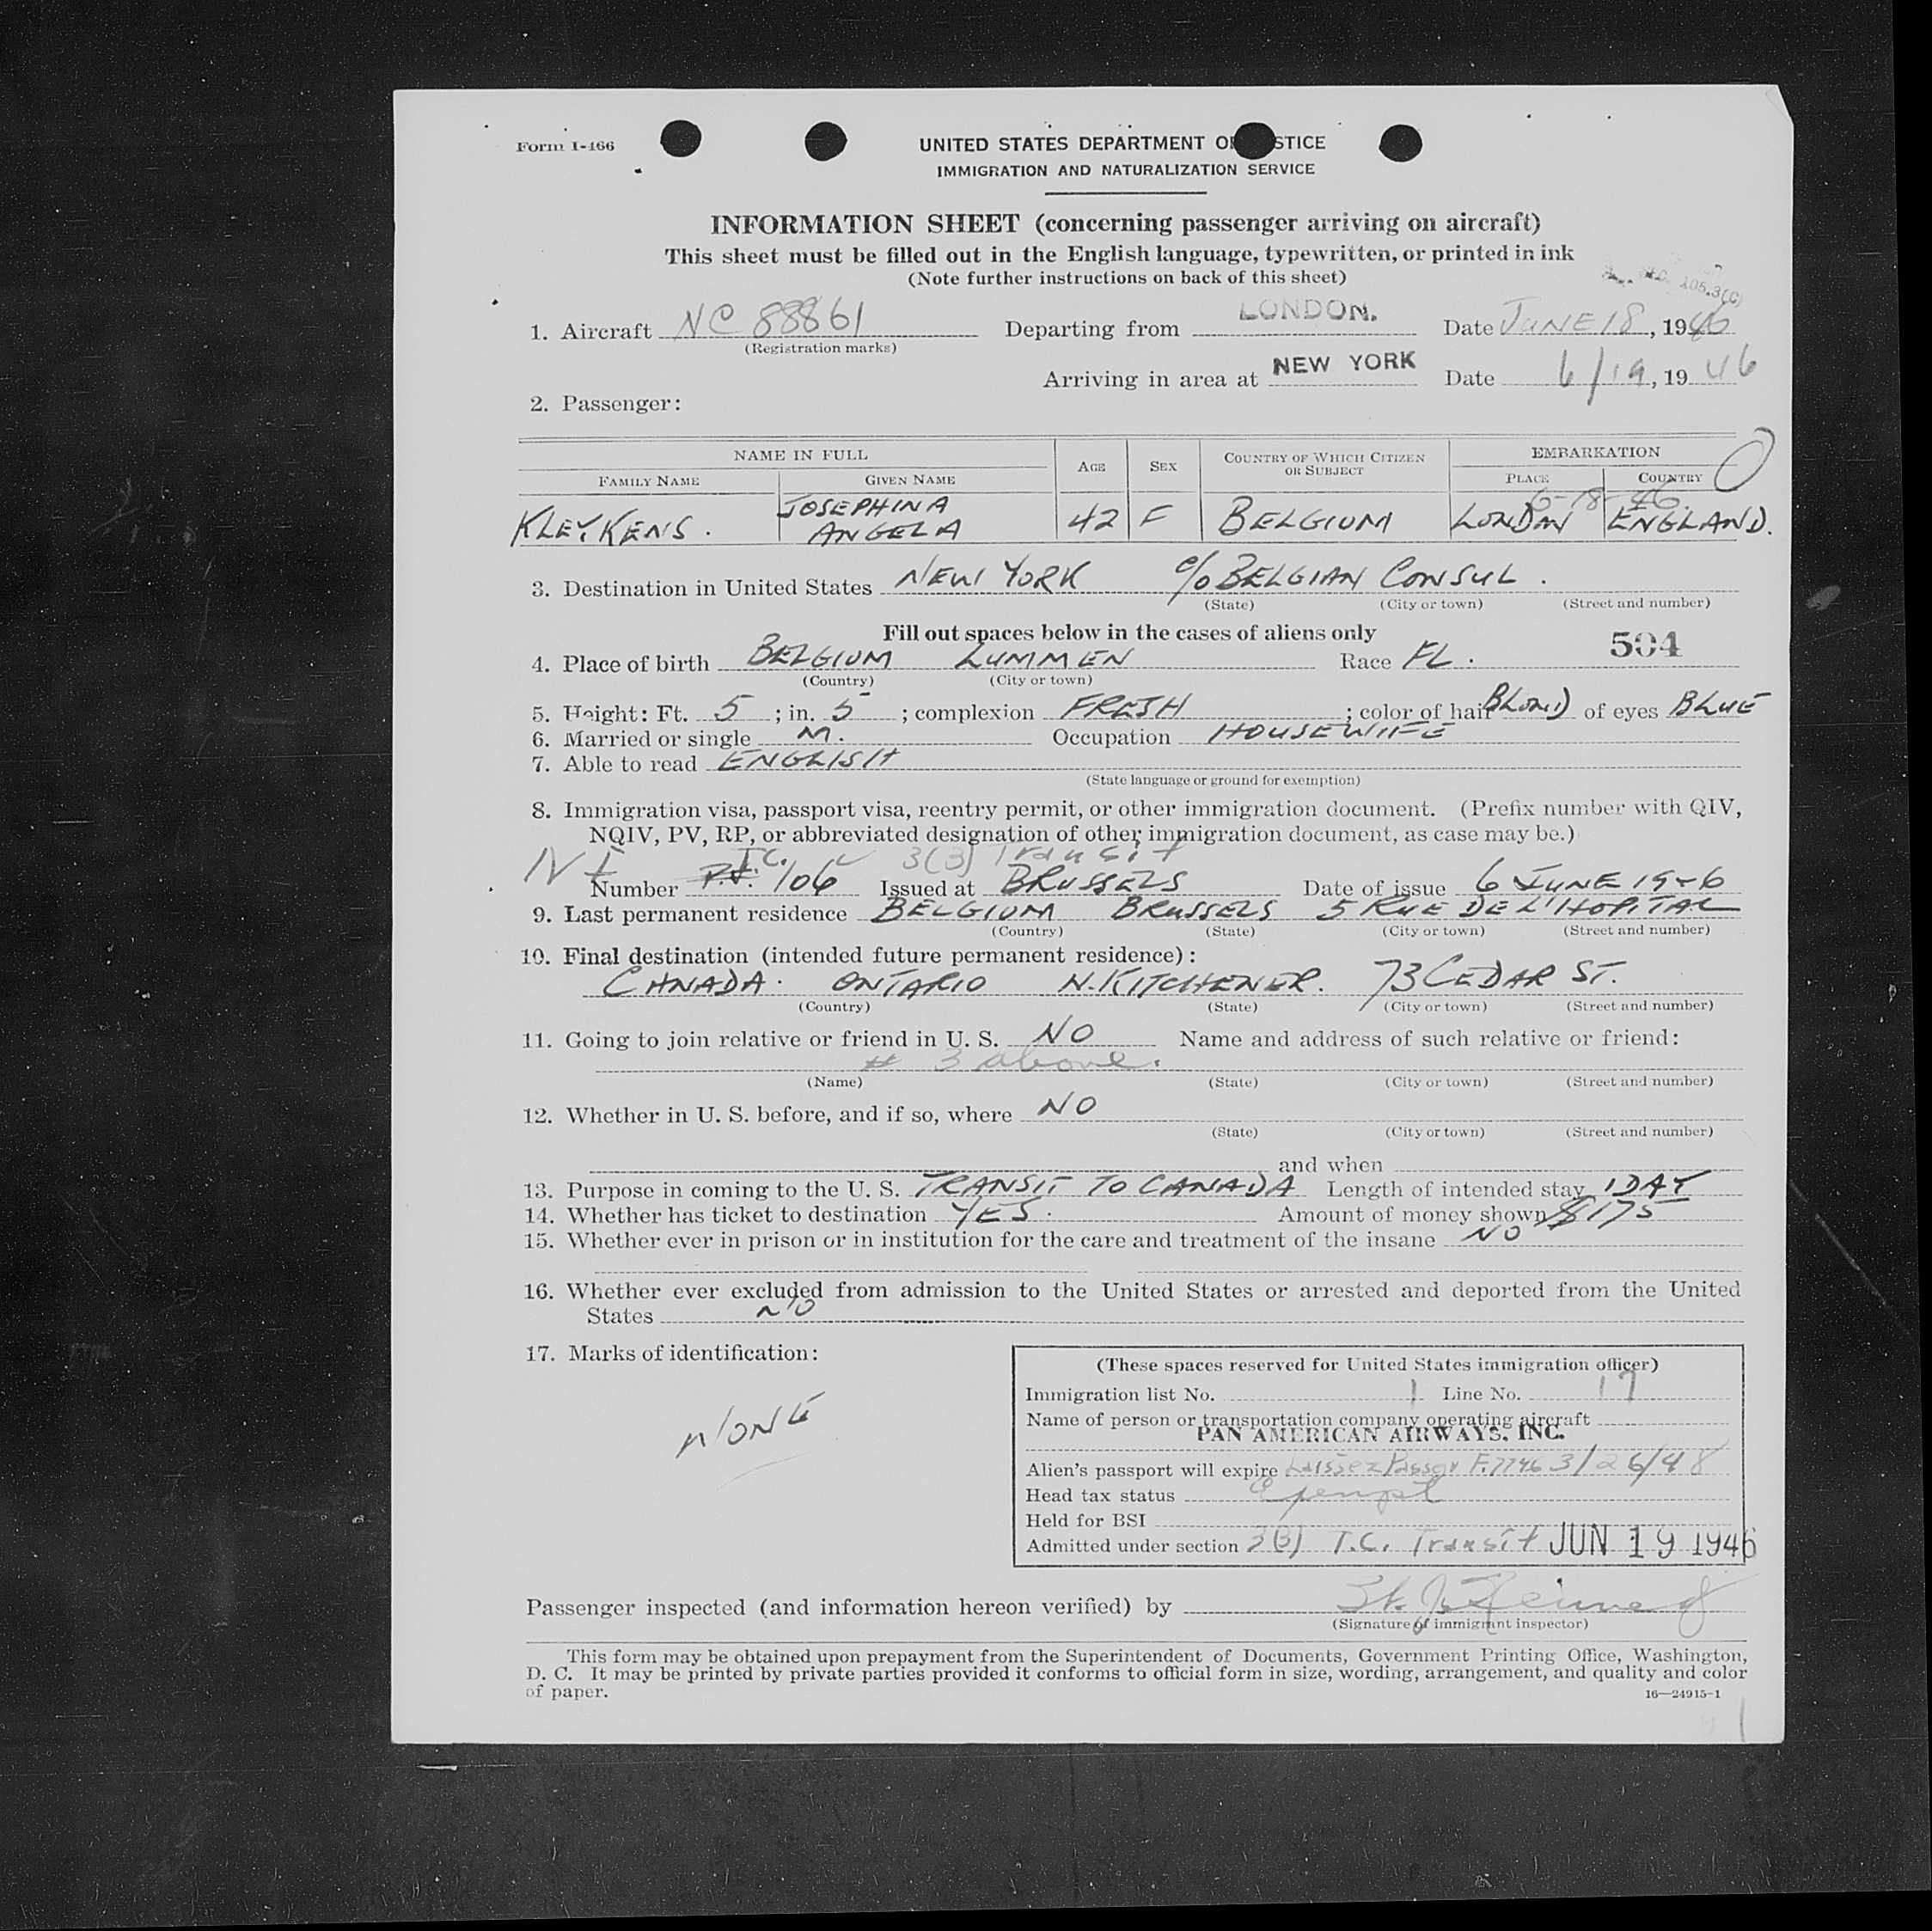 Form I-466
UNITED STATES DEPARTMENT OF JUSTICE
IMMIGRATION AND NATURALIZATION SERVICE
INFORMATION SHEET (concerning passenger arriving on aircraft)
This sheet must be filled out in the English language, typewritten, or printed in ink
(Note further instructions on back of this sheet)
105.3(C)
1. Aircraft NC 88861 Departing from LONDON. Date JUNE 18, 1946
(Registration marks)
Arriving in area at NEW YORK Date 6/19, 19 46
2. Passenger:
NAME IN FULL AGE SEX COUNTRY OF WHICH CITIZEN OR SUBJECT EMBARKATION
FAMILY NAME GIVEN NAME PLACE COUNTRY
6-18-46.
KLEYKENS. JOSEPHINA ANGELA 42 F BELGIUM LONDON ENGLAND.
3. Destination in United States NEW YORK c/o BELGIAN CONSUL.
(State) (City or town) (Street and number)
Fill out spaces below in the cases of aliens only
504
4. Place of birth BELGIUM LUMMEN Race FL.
(Country) (City or town)
5. Height: Ft. 5; in. 5; complexion FRESH; color of hair BLOND of eyes BLUE
6. Married or single M. Occupation HOUSEWIFE
7. Able to read ENGLISH
(State language or ground for exemption)
8. Immigration visa, passport visa, reentry permit, or other immigration document. (Prefix number with QIV,
NQIV, PV, RP, or abbreviated designation of other immigration document, as case may be.)
T.C. 3(3) Transit
Number P.V. 106 Issued at BRUSSELS Date of issue 6 JUNE 1946
9. Last permanent residence BELGIUM BRUSSELS 5 RUE DE L'HOPITAL
(Country) (State) (City or town) (Street and number)
10. Final destination (intended future permanent residence):
CANADA. ONTARIO N. KITCHENER. 73 CEDAR ST.
(Country) (State) (City or town) (Street and number)
11. Going to join relative or friend in U. S. NO Name and address of such relative or friend:
# 3 above.
(Name) (State) (City or town) (Street and number)
12. Whether in U. S. before, and if so, where NO
(State) (City or town) (Street and number)
and when
13. Purpose in coming to the U. S. TRANSIT TO CANADA Length of intended stay 1 DAY
14. Whether has ticket to destination YES. Amount of money shown $175
15. Whether ever in prison or in institution for the care and treatment of the insane NO
16. Whether ever excluded from admission to the United States or arrested and deported from the United
States NO
17. Marks of identification:
NONE
(These spaces reserved for United States immigration officer)
Immigration list No. 1 Line No. 17
Name of person or transportation company operating aircraft
PAN AMERICAN AIRWAYS, INC.
Alien's passport will expire Laissez Passer F.7746 3/26/48
Head tax status Exempt
Held for BSI
Admitted under section 3(3) T.C. Transit JUN 19 1946
Passenger inspected (and information hereon verified) by
(Signature of immigrant inspector)
This form may be obtained upon prepayment from the Superintendent of Documents, Government Printing Office, Washington,
D. C. It may be printed by private parties provided it conforms to official form in size, wording, arrangement, and quality and color
of paper.
16—24915-1